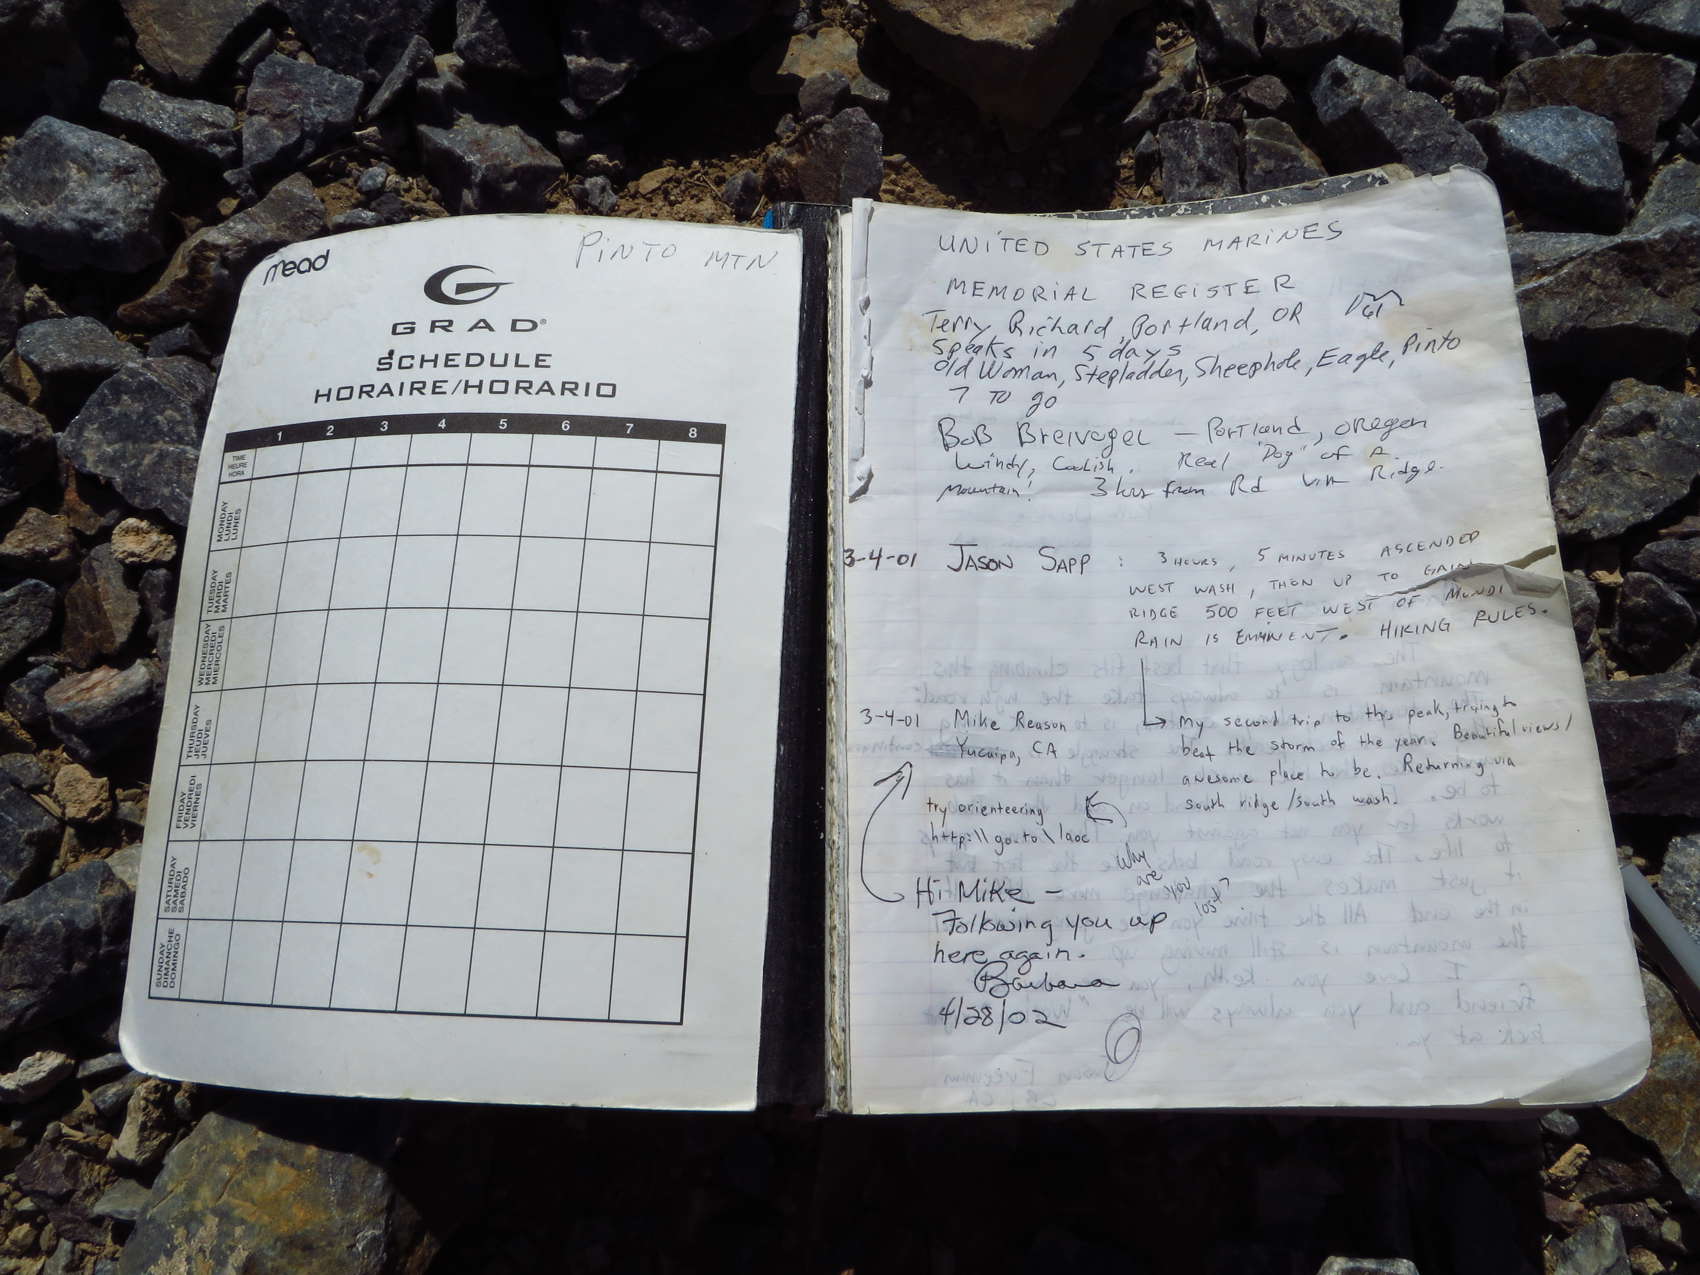 mead
PINTO MTN.
GRAD®
SCHEDULE
HORAIRE/HORARIO
TIME
HEURE
HORA
1 2 3 4 5 6 7 8
MONDAY
LUNDI
LUNES
TUESDAY
MARDI
MARTES
WEDNESDAY
MERCREDI
MIERCOLES
THURSDAY
JEUDI
JUEVES
FRIDAY
VENDREDI
VIERNES
SATURDAY
SAMEDI
SABADO
SUNDAY
DIMANCHE
DOMINGO
UNITED STATES MARINES
MEMORIAL REGISTER
Terry Richard, Portland, OR
5 peaks in 5 days
Old Woman, Stepladder, Sheephole, Eagle, Pinto
7 TO go
BoB Breivogel — Portland, OREGON
Windy, Coolish. Real "Dog" of A
Mountain! 3 hrs from Rd via Ridge.
3-4-01 JASON SAPP : 3 HOURS, 5 MINUTES ASCENDED
WEST WASH, THEN UP TO GAIN
RIDGE 500 FEET WEST OF MUNDI
RAIN IS EMINENT. HIKING RULES.
3-4-01 Mike Reason → My second trip to this peak, trying to
Yucaipa, CA beat the storm of the year. Beautiful views /
awesome place to be. Returning via
south ridge/south wash.
try orienteering
http:\\go.to\laoc
Why
are
you
lost?
Hi Mike –
Following you up
here again.
Barbara
4/28/02